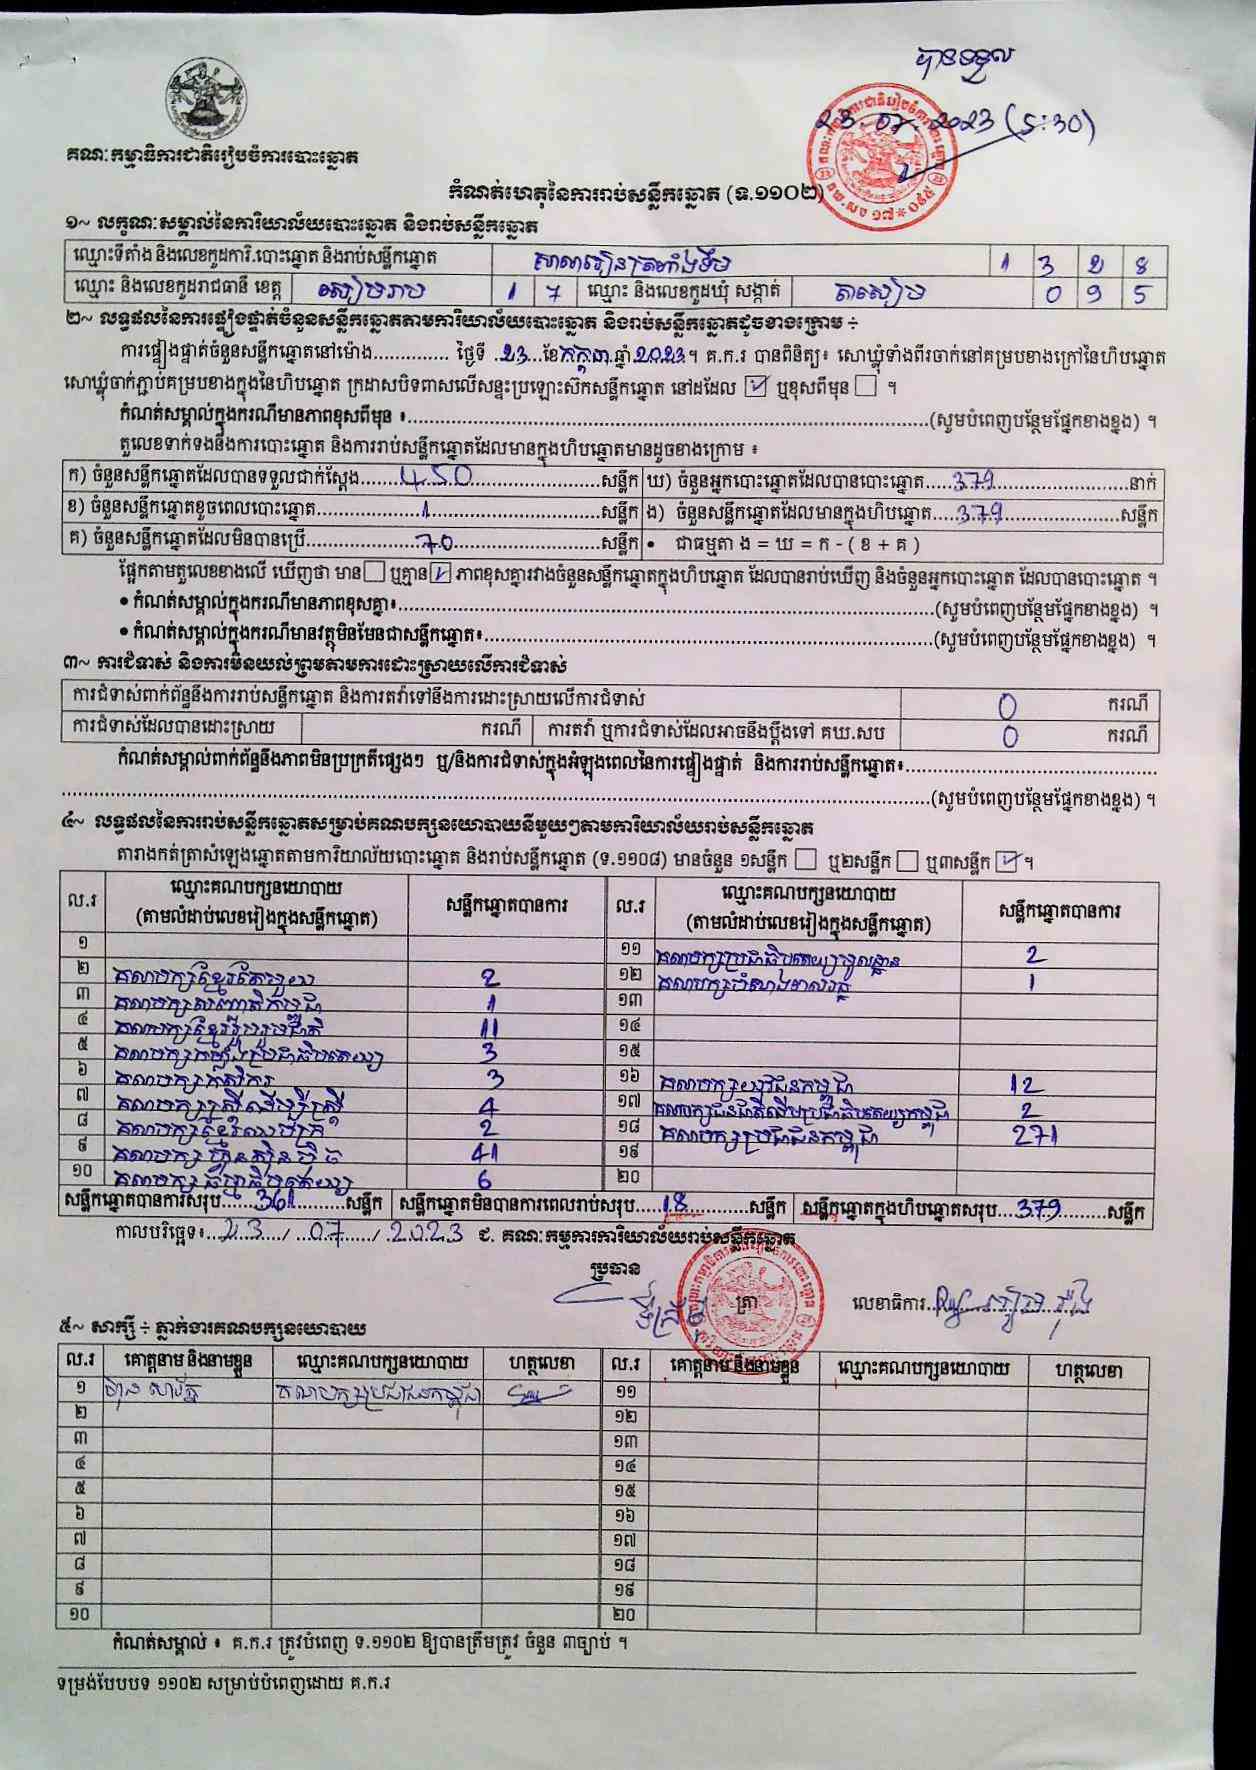 បានទទួល
23.07.2023 (5:30)
គណៈកម្មាធិការជាតិរៀបចំការបោះឆ្នោត
កំណត់ហេតុនៃការរាប់សន្លឹកឆ្នោត (ទ.១១០២)
១~ លក្ខណៈសម្គាល់នៃការិយាល័យបោះឆ្នោត និងរាប់សន្លឹកឆ្នោត
ឈ្មោះទីតាំង និងលេខកូដការិ.បោះឆ្នោត និងរាប់សន្លឹកឆ្នោត សាលារៀនត្រពាំងទឹម 1 3 2 8
ឈ្មោះ និងលេខកូដរាជធានី ខេត្ត សៀមរាប 1 7 ឈ្មោះ និងលេខកូដឃុំ សង្កាត់ តាសៀម 0 9 5
២~ លទ្ធផលនៃការផ្ទៀងផ្ទាត់ចំនួនសន្លឹកឆ្នោតតាមការិយាល័យបោះឆ្នោត និងរាប់សន្លឹកឆ្នោតដូចខាងក្រោម ÷
ការផ្ទៀងផ្ទាត់ចំនួនសន្លឹកឆ្នោតនៅម៉ោង.............. ថ្ងៃទី .23...ខែកក្កដា.ឆ្នាំ2023។ គ.ក.រ បានពិនិត្យ៖ សោឃ្លុំទាំងពីរចាក់នៅគម្របខាងក្រៅនៃហិបឆ្នោត
សោឃ្លុំចាក់ភ្ជាប់គម្របខាងក្នុងនៃហិបឆ្នោត ក្រដាសបិទពាសលើសន្ទះប្រឡោះស៊កសន្លឹកឆ្នោត នៅដដែល ☑ ឬខុសពីមុន ☐ ។
កំណត់សម្គាល់ក្នុងករណីមានភាពខុសពីមុន ៖..........(សូមបំពេញបន្ថែមផ្នែកខាងខ្នង) ។
តួលេខទាក់ទងនឹងការបោះឆ្នោត និងការរាប់សន្លឹកឆ្នោតដែលមានក្នុងហិបឆ្នោតមានដូចខាងក្រោម ៖
ក) ចំនួនសន្លឹកឆ្នោតដែលបានទទួលជាក់ស្តែង........450........សន្លឹក ឃ) ចំនួនអ្នកបោះឆ្នោតដែលបានបោះឆ្នោត.....379........នាក់
ខ) ចំនួនសន្លឹកឆ្នោតខូចពេលបោះឆ្នោត........1........សន្លឹក ង) ចំនួនសន្លឹកឆ្នោតដែលមានក្នុងហិបឆ្នោត....379........សន្លឹក
គ) ចំនួនសន្លឹកឆ្នោតដែលមិនបានប្រើ........70........សន្លឹក • ជាធម្មតា ង = ឃ = ក - ( ខ + គ )
ផ្អែកតាមតួលេខខាងលើ ឃើញថា មាន ☐ ឬគ្មាន ☑ ភាពខុសគ្នារវាងចំនួនសន្លឹកឆ្នោតក្នុងហិបឆ្នោត ដែលបានរាប់ឃើញ និងចំនួនអ្នកបោះឆ្នោត ដែលបានបោះឆ្នោត ។
• កំណត់សម្គាល់ក្នុងករណីមានភាពខុសគ្នា៖..........(សូមបំពេញបន្ថែមផ្នែកខាងខ្នង) ។
• កំណត់សម្គាល់ក្នុងករណីមានវត្ថុមិនមែនជាសន្លឹកឆ្នោត៖..........(សូមបំពេញបន្ថែមផ្នែកខាងខ្នង) ។
៣~ ការជំទាស់ និងការមិនយល់ព្រមតាមការដោះស្រាយលើការជំទាស់
ការជំទាស់ពាក់ព័ន្ធនឹងការរាប់សន្លឹកឆ្នោត និងការតវ៉ាទៅនឹងការដោះស្រាយលើការជំទាស់ 0 ករណី
ការជំទាស់ដែលបានដោះស្រាយ ករណី ការតវ៉ា ឬការជំទាស់ដែលអាចនឹងប្តឹងទៅ គឃ.សប 0 ករណី
កំណត់សម្គាល់ពាក់ព័ន្ធនឹងភាពមិនប្រក្រតីផ្សេងៗ ឬ/និងការជំទាស់ក្នុងអំឡុងពេលនៃការផ្ទៀងផ្ទាត់ និងការរាប់សន្លឹកឆ្នោត៖..........
..........(សូមបំពេញបន្ថែមផ្នែកខាងខ្នង) ។
៤~ លទ្ធផលនៃការរាប់សន្លឹកឆ្នោតសម្រាប់គណបក្សនយោបាយនីមួយៗតាមការិយាល័យរាប់សន្លឹកឆ្នោត
តារាងកត់ត្រាសំឡេងឆ្នោតតាមការិយាល័យបោះឆ្នោត និងរាប់សន្លឹកឆ្នោត (ទ.១១០៨) មានចំនួន ១សន្លឹក ☐ ឬ២សន្លឹក ☐ ឬ៣សន្លឹក ☑ ។
ល.រ ឈ្មោះគណបក្សនយោបាយ (តាមលំដាប់លេខរៀងក្នុងសន្លឹកឆ្នោត) សន្លឹកឆ្នោតបានការ ល.រ ឈ្មោះគណបក្សនយោបាយ (តាមលំដាប់លេខរៀងក្នុងសន្លឹកឆ្នោត) សន្លឹកឆ្នោតបានការ
១ ១១ គណបក្សប្រជាធិបតេយ្យមូលដ្ឋាន 2
២ គណបក្សខ្មែរតែមួយ 2 ១២ គណបក្សបំណាងពលរដ្ឋ 1
៣ គណបក្សសញ្ជាតិកម្ពុជា 1 ១៣
៤ គណបក្សខ្មែររួបរួមជាតិ 11 ១៤
៥ គណបក្សកម្លាំងប្រជាធិបតេយ្យ 3 ១៥
៦ គណបក្សកសិករ 3 ១៦ គណបក្សយុវជនកម្ពុជា 12
៧ គណបក្សស្ត្រីដើម្បីស្ត្រី 4 ១៧ គណបក្សជនជាតិដើមប្រជាធិបតេយ្យកម្ពុជា 2
៨ គណបក្សខ្មែរឈប់ក្រ 2 ១៨ គណបក្សប្រជាជនកម្ពុជា 271
៩ គណបក្សហ៊្វុនស៊ិនប៉ិច 41 ១៩
១០ គណបក្សធម្មាធិបតេយ្យ 6 ២០
សន្លឹកឆ្នោតបានការសរុប.....361........សន្លឹក សន្លឹកឆ្នោតមិនបានការពេលរាប់សរុប.....18........សន្លឹក សន្លឹកឆ្នោតក្នុងហិបឆ្នោតសរុប...379........សន្លឹក
កាលបរិច្ឆេទ៖...23..../..07..../.2023 ជ. គណៈកម្មការការិយាល័យរាប់សន្លឹកឆ្នោត
ប្រធាន
ត្រា
លេខាធិការ
៥~ សាក្សី ÷ ភ្នាក់ងារគណបក្សនយោបាយ
ល.រ គោត្តនាម និងនាមខ្លួន ឈ្មោះគណបក្សនយោបាយ ហត្ថលេខា ល.រ គោត្តនាម និងនាមខ្លួន ឈ្មោះគណបក្សនយោបាយ ហត្ថលេខា
១ គណបក្សប្រជាជនកម្ពុជា ១១
២ ១២
៣ ១៣
៤ ១៤
៥ ១៥
៦ ១៦
៧ ១៧
៨ ១៨
៩ ១៩
១០ ២០
កំណត់សម្គាល់ ៖ គ.ក.រ ត្រូវបំពេញ ទ.១១០២ ឱ្យបានត្រឹមត្រូវ ចំនួន ៣ច្បាប់ ។
ទម្រង់បែបបទ ១១០២ សម្រាប់បំពេញដោយ គ.ក.រ